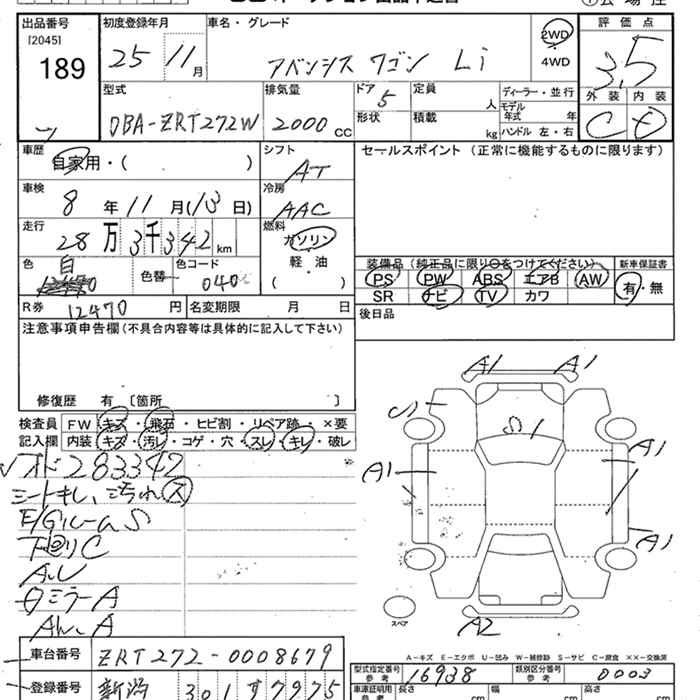 出品番号 初度登録年月 車名・グレード 2WD 評価点
[2045] 25 11月 アベンシス ワゴン Li 4WD 3.5
189
型式 排気量 ドア 定員 ディーラー・並行 外装 内装
DBA-ZRT272W 2000cc 5 人 モデル年式 年 C
形状 積載 kg ハンドル 左・右
車歴 自家用・( ) シフト AT セールスポイント(正常に機能するものに限ります)
車検 8年 11月(13日) 冷房 AAC
走行 28万3千342km 燃料 ガソリン
軽・油
( )
色 白 色替 色コード 040 装備品(純正品に限り○をつけてください) 新車保証書
PS PW ABS エアB AW 有・無
SR ナビ TV カワ
R券 12470円 名変期限 月 日 後日品
注意事項申告欄(不具合内容等は具体的に記入して下さい)
修復歴 有 〔箇所 〕
検査員 FW キズ・飛石・ヒビ割・リペア跡・×要
記入欄 内装 キズ・汚レ・コゲ・穴・スレ・キレ・破レ
オド283342
シートキレ、汚れス
E/GルームS
下回りC
A.U
ミラーA
A1 A1
U1 S1
A1 A1
A1
スペア A2
A-キズ E-エクボ U-凹み W-補修跡 S-サビ C-腐食 ××-交換済
車台番号 ZRT272-0008679 型式指定番号 参考 16938 類別区分番号 参考 0003
登録番号 新潟 301 す 7975 車庫証明用 参考 長さ cm 幅 cm 高さ cm